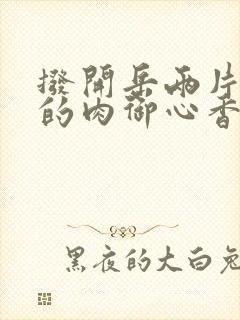 撥開岳兩片
的肉御心香
黑夜的大白兔